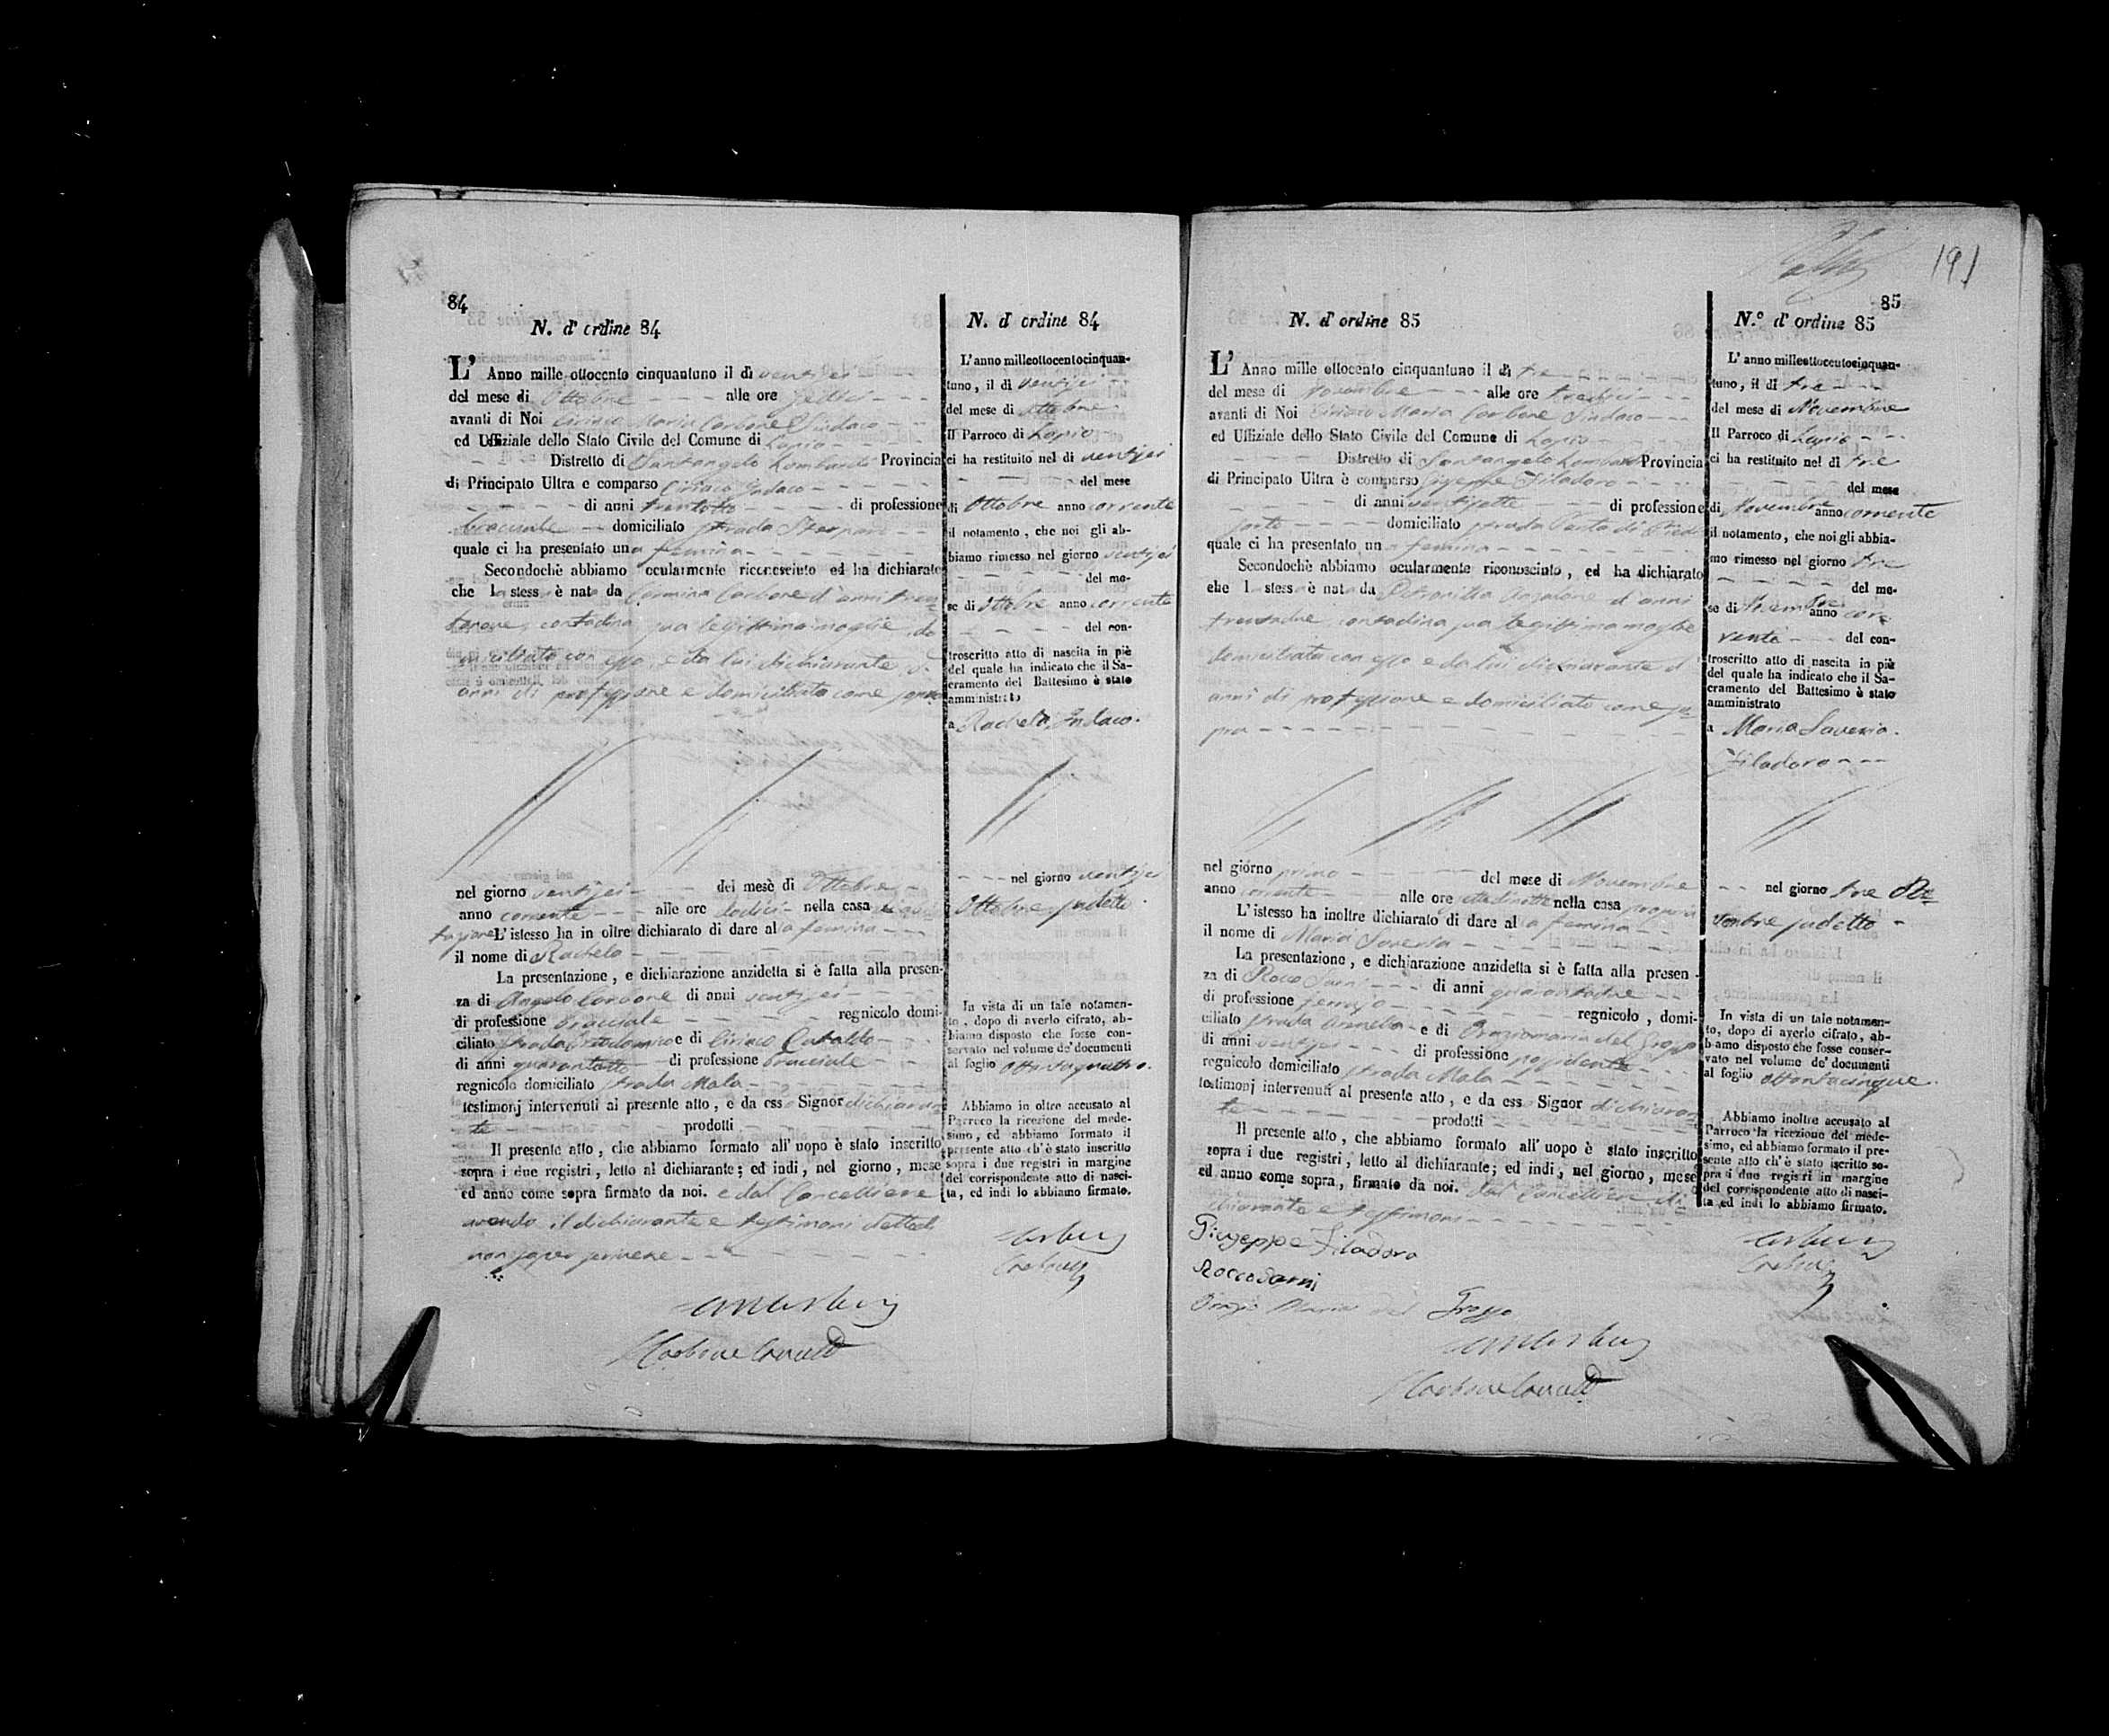 84
N. d' ordine 84
L' Anno mille ottocento cinquantuno il dì ventisei
del mese di Ottobre alle ore sedici
avanti di Noi Ciriaco Maria Carbone Sindaco
ed Uffiziale dello Stato Civile del Comune di Lapio
Distretto di Santangelo Lombardi Provincia
di Principato Ultra e comparso Ciriaco Indaco
di anni trentotto di professione
bracciale domiciliato strada
quale ci ha presentato una femina
Secondochè abbiamo ocularmente riconosciuto ed ha dichiarato
che la stessa è nata da Carmina Carbone d'anni tren-
tanove contadina sua legittima moglie do
miciliata con esso, e da lui dichiarante d'
anni di professione e domiciliato come sopra
nel giorno ventisei del mesè di Ottobre
anno corrente alle ore dodici nella casa di abi
tazione L'istesso ha in oltre dichiarato di dare alla femina
il nome di Rachela
La presentazione, e dichiarazione anzidetta si è fatta alla presen-
za di Angelo Carbone di anni ventisei
di professione bracciale regnicolo domi-
ciliato strada e di Ciriaco Cataldo
di anni quarantotto di professione bracciale
regnicolo domiciliato strada Mala
testimonj intervenuti al presente atto, e da esso Signor dichiaran
te prodotti
Il presente atto, che abbiamo formato all' uopo è stato inscritto
sopra i due registri, letto al dichiarante; ed indi, nel giorno, mese
ed anno come sopra firmato da noi. e dal Cancelliere
avendo il dichiarante e testimoni detto di
non saper scrivere
N. d' ordine 84
L' anno milleottocentocinquan-
tuno, il di ventisei
del mese di Ottobre
Il Parroco di Lapio
ci ha restituito nel di ventisei
del mese
di Ottobre anno corrente
il notamento, che noi gli ab-
biamo rimesso nel giorno ventisei
del me-
se di Ottobre anno corrente
del con-
troscritto atto di nascita in piè
del quale ha indicato che il Sa-
cramento del Battesimo è stato
amministrato
a Rachela Indaco.
nel giorno ventisei
Ottobre sudetto.
In vista di un tale notamen-
to, dopo di averlo cifrato, ab-
biamo disposto che fosse con-
servato nel volume de' documenti
al foglio ottantaquattro.
Abbiamo in oltre accusato al
Parroco la ricezione del mede-
simo, ed abbiamo formato il
presente atto ch' è stato inscritto
sopra i due registri in margine
del corrispondente atto di nasci-
ta, ed indi lo abbiamo firmato.
191
85
N. d' ordine 85
L' Anno mille ottocento cinquantuno il dì tre
del mese di Novembre alle ore tredici
avanti di Noi Ciriaco Maria Carbone Sindaco
ed Uffiziale dello Stato Civile del Comune di Lapio
Distretto di Santangelo Lombardi Provincia
di Principato Ultra è comparso Giuseppe Filadoro
di anni ventisette di professione
sarto domiciliato strada
quale ci ha presentato una femina
Secondochè abbiamo ocularmente riconosciuto, ed ha dichiarato
che la stessa è nata da Petronilla d'anni
trentadue contadina sua legittima moglie
domiciliata con esso e da lui dichiarante d'
anni di professione e domiciliato come so-
pra
nel giorno primo del mese di Novembre
anno corrente alle ore nella casa propria
L' istesso ha inoltre dichiarato di dare alla femina
il nome di Maria Saveria
La presentazione, e dichiarazione anzidetta si è fatta alla presen-
za di Rocco Sarni di anni quarantadue
di professione ferrajo regnicolo, domi-
ciliato strada e di Oraziomaria del Grosso
di anni ventisei di professione possidente
regnicolo domiciliato strada Mala
testimonj intervenuti al presente atto, e da esso Signor dichiaran
te prodotti
Il presente atto, che abbiamo formato all' uopo è stato inscritto
sopra i due registri, letto al dichiarante; ed indi, nel giorno, mese
ed anno come sopra, firmato da noi. dal Cancelliere di
chiarante e testimoni
Giuseppe Filadoro
Rocco Sarni
Orazio Maria del Grosso
N.º d' ordine 85
L' anno milleottocentocinquan-
tuno, il di tre
del mese di Novembre
Il Parroco di Lapio
ci ha restituito nel dì tre
del mese
di Novembre anno corrente
il notamento, che noi gli abbia-
mo rimesso nel giorno tre
del me-
se di Novembre anno cor-
rente del con-
troscritto atto di nascita in piè
del quale ha indicato che il Sa-
cramento del Battesimo è stato
amministrato
a Maria Saveria
Filadoro
nel giorno tre No-
vembre sudetto
In vista di un tale notamen-
to, dopo di averlo cifrato, ab-
biamo disposto che fosse conser-
vato nel volume de' documenti
al foglio ottantacinque.
Abbiamo inoltre accusato al
Parroco la ricezione del mede-
simo, ed abbiamo formato il pre-
sente atto ch' è stato iscritto so-
pra i due registri in margine
del corrispondente atto di nasci-
ta ed indi lo abbiamo firmato.